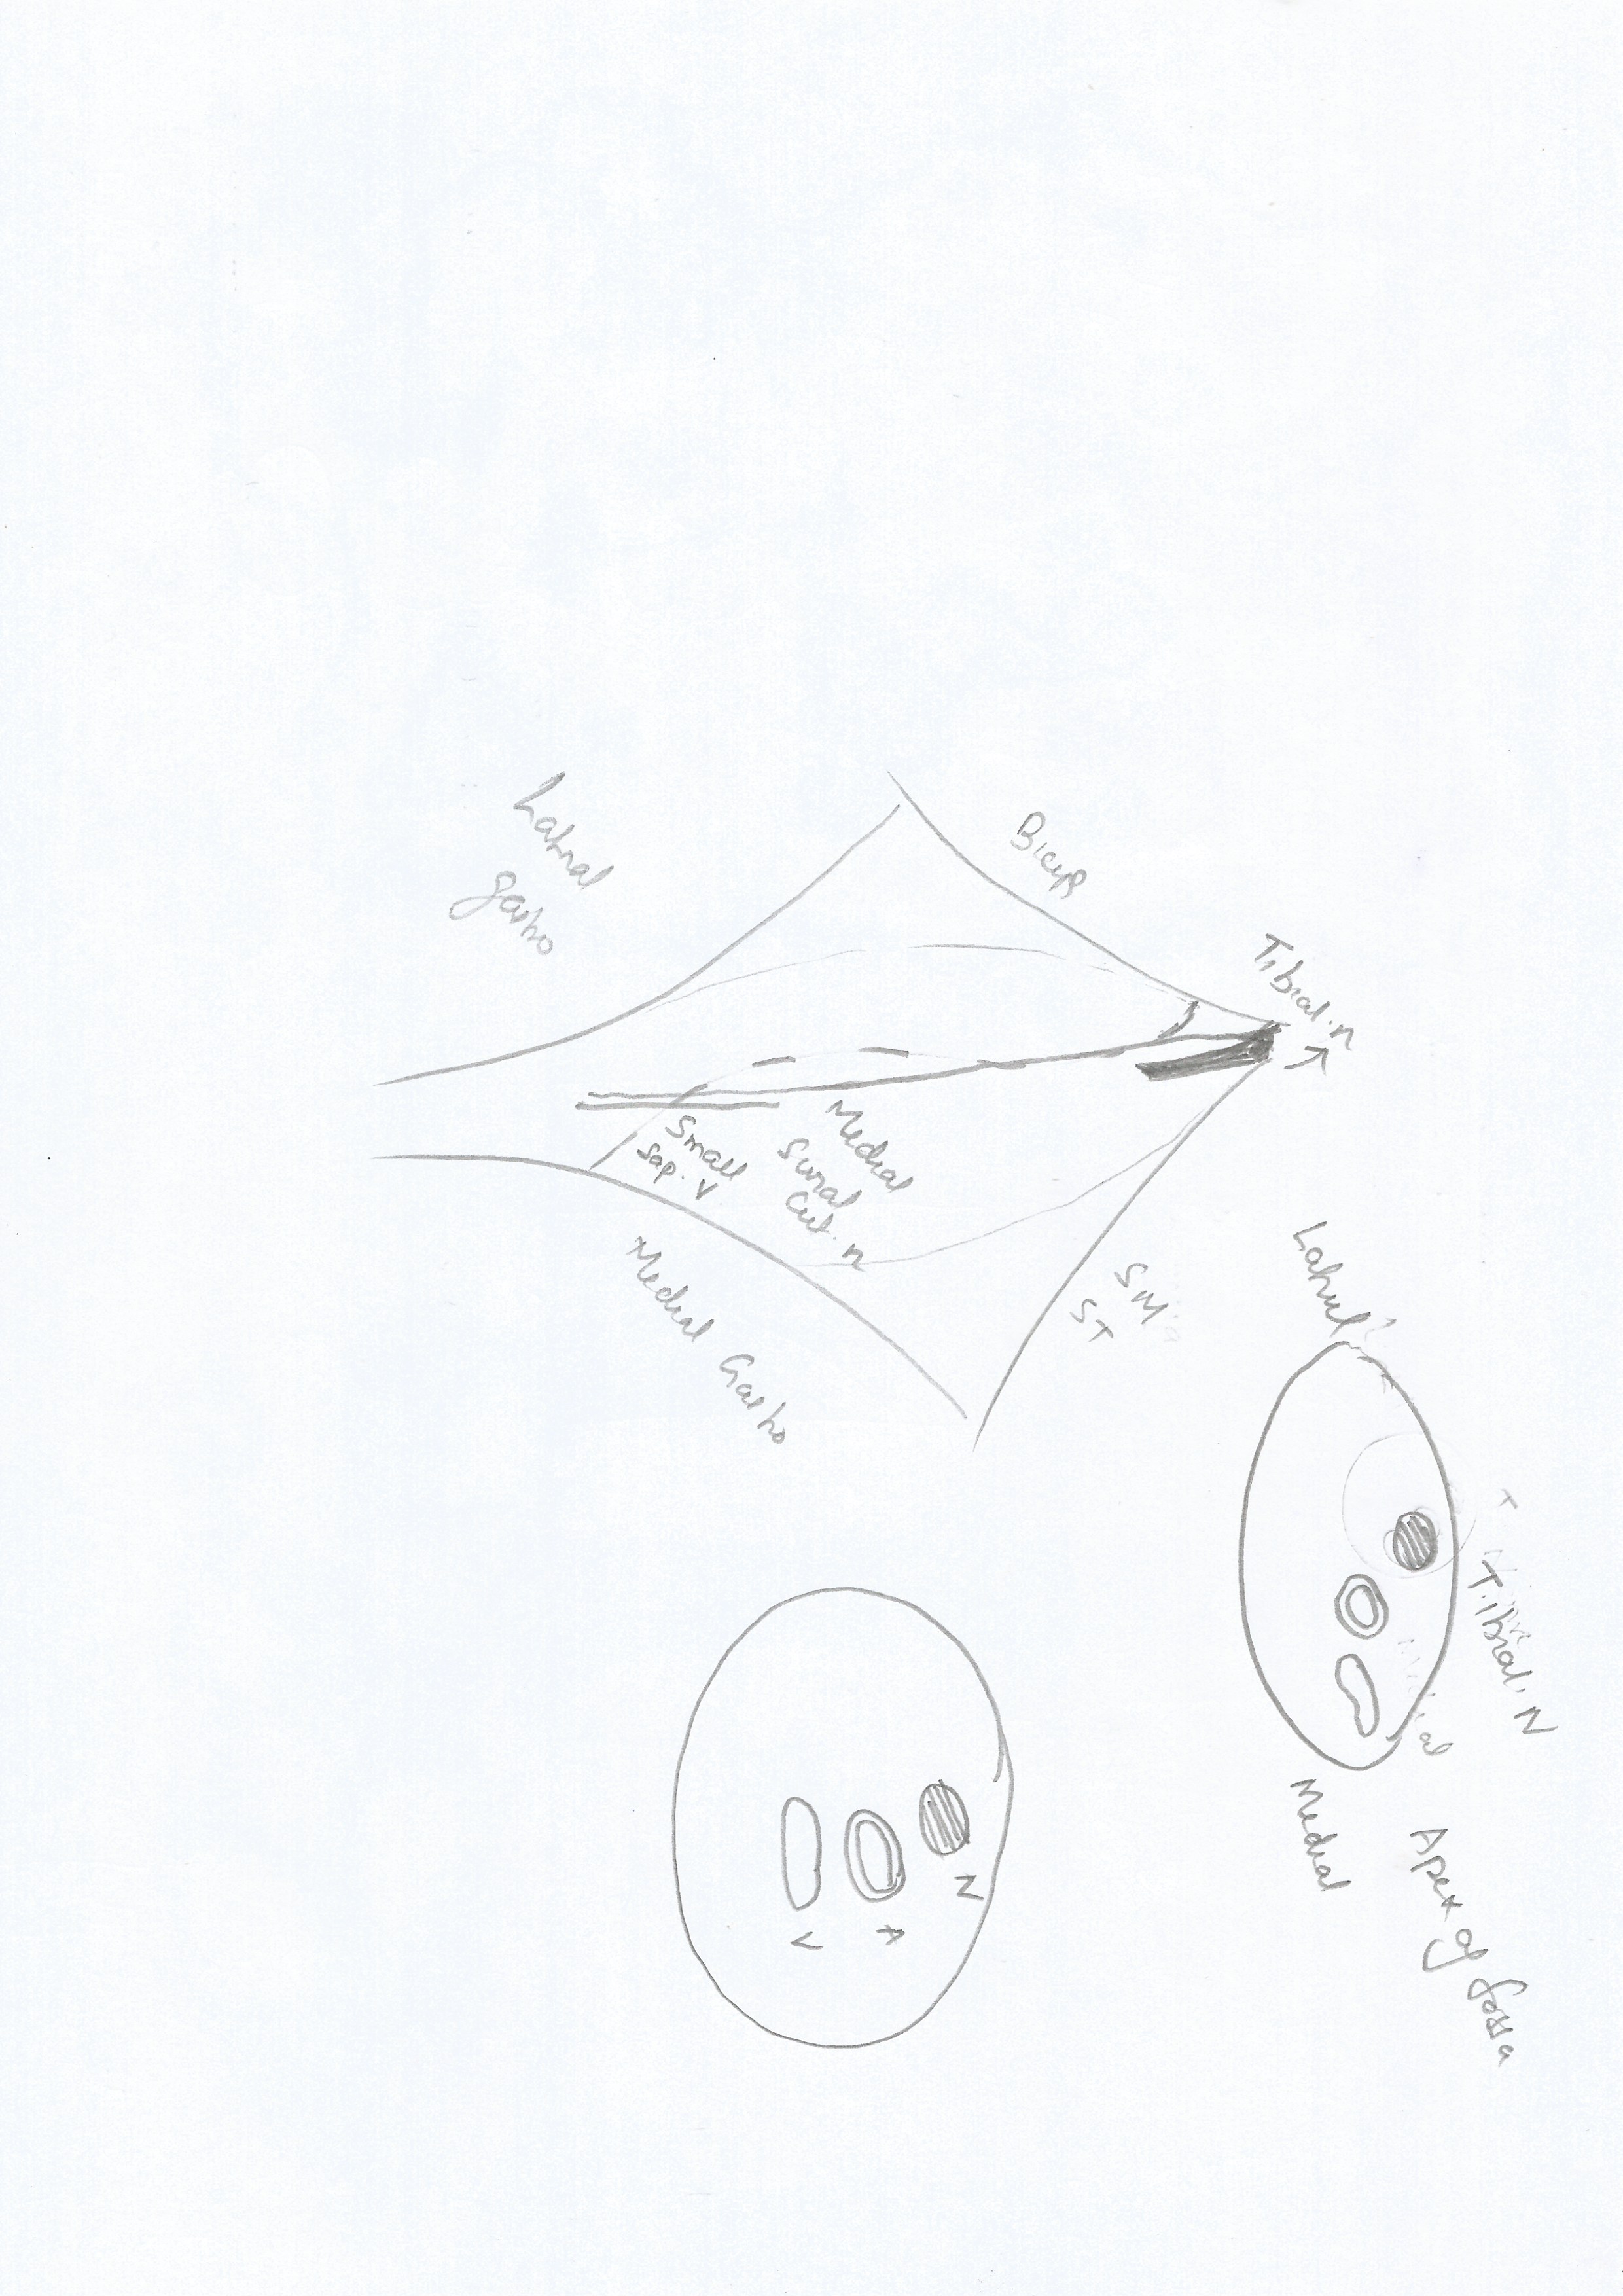 Tibial. N
Apex of fossa
Medial
Lateral
Medial
Tibial. n
SM
ST
Biceps
N
A
V
Medial
Sural
Cut. n
Small
Sap. V
Medial Gastro
Lateral
gastro